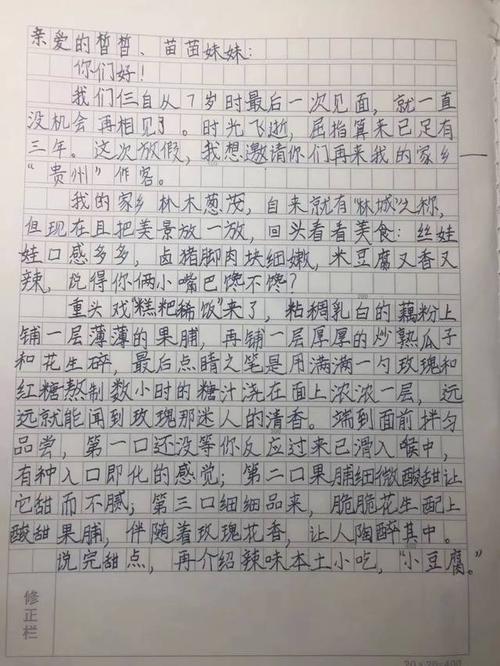 亲爱的皙皙、苗苗妹妹：
你们好！
我们仨自从7岁时最后一次见面，就一直
没机会再相见了。时光飞逝，屈指算来已足有
三年。这次放假，我想邀请你们再来我的家乡
“贵州”作客。
我的家乡林木葱茏，自来就有“林城”之称，
但现在且把美景放一放，回头看看美食：丝娃
娃口感多多，卤猪脚肉块细嫩，米豆腐又香又
辣，说得你俩小嘴巴馋不馋？
重头戏“糕粑稀饭”来了，粘稠乳白的藕粉上
铺一层薄薄的果脯，再铺一层厚厚的炒熟瓜子
和花生碎，最后点睛之笔是用满满一勺玫瑰和
红糖熬制数小时的糖汁浇在面上浓浓一层，远
远就能闻到玫瑰那迷人的清香。端到面前拌匀
品尝，第一口还没等你反应过来已滑入喉中，
有种入口即化的感觉；第二口果脯细微酸甜让
它甜而不腻；第三口细细品来，脆脆花生配上
酸甜果脯，伴随着玫瑰花香，让人陶醉其中。
说完甜点，再介绍辣味本土小吃，“小豆腐。”
修正栏
20×20=400